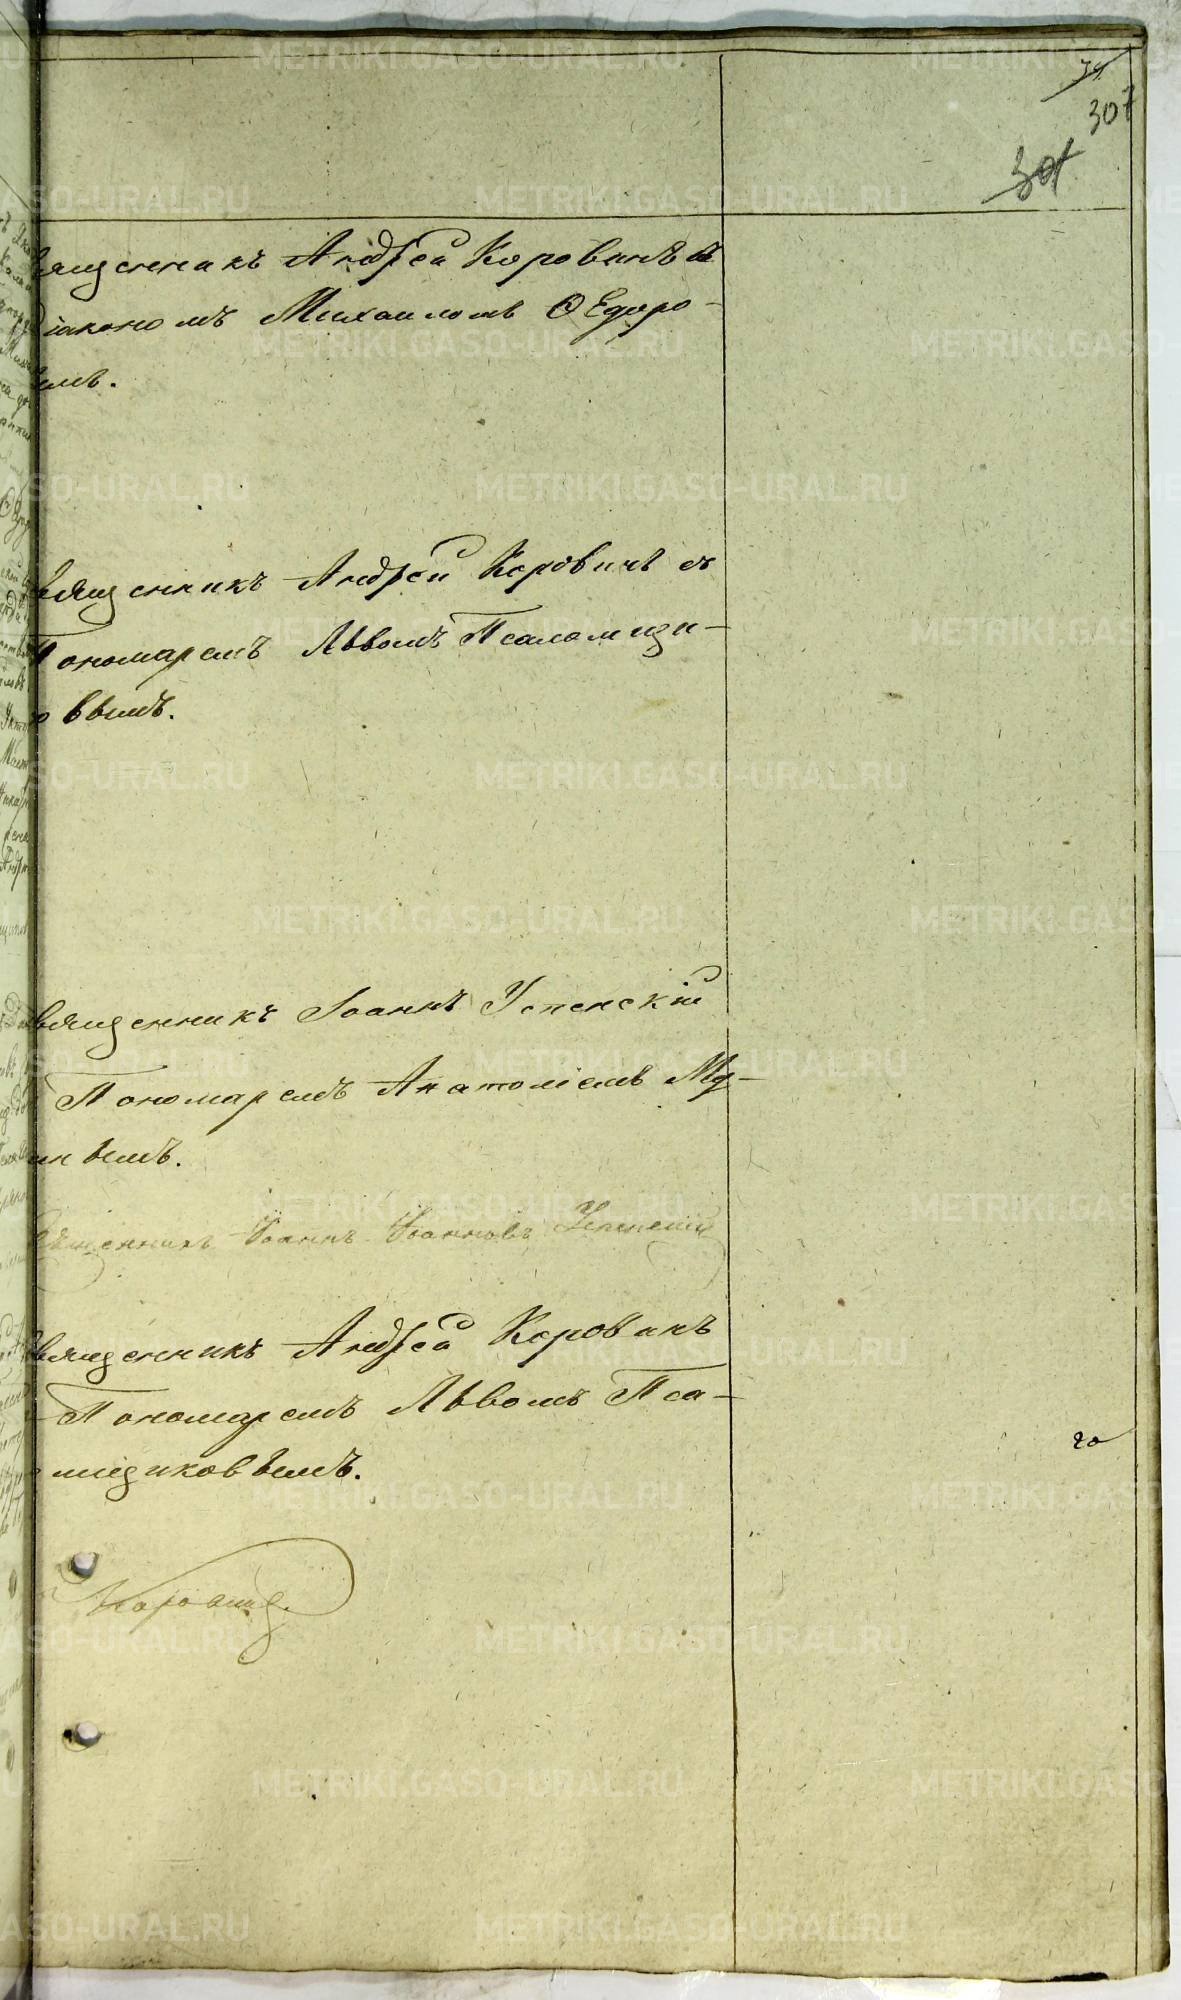 74
307
301
вященникъ Андрей Коровинъ съ
діакономъ Михаиломъ Ѳедоро-
ымъ.
вященникъ Андрей Коровинъ съ
Пономаремъ Львомъ Псаломщи-
овымъ.
вященникъ Іоаннъ Успенскій
Пономаремъ Анатоліемъ Му-
инымъ.
вященникъ Іоаннъ Іоанновъ Успенскій
вященникъ Андрей Коровинъ
Пономаремъ Львомъ Пса-
мщиковымъ.
Коровинъ.
METRIKI.GASO-URAL.RU